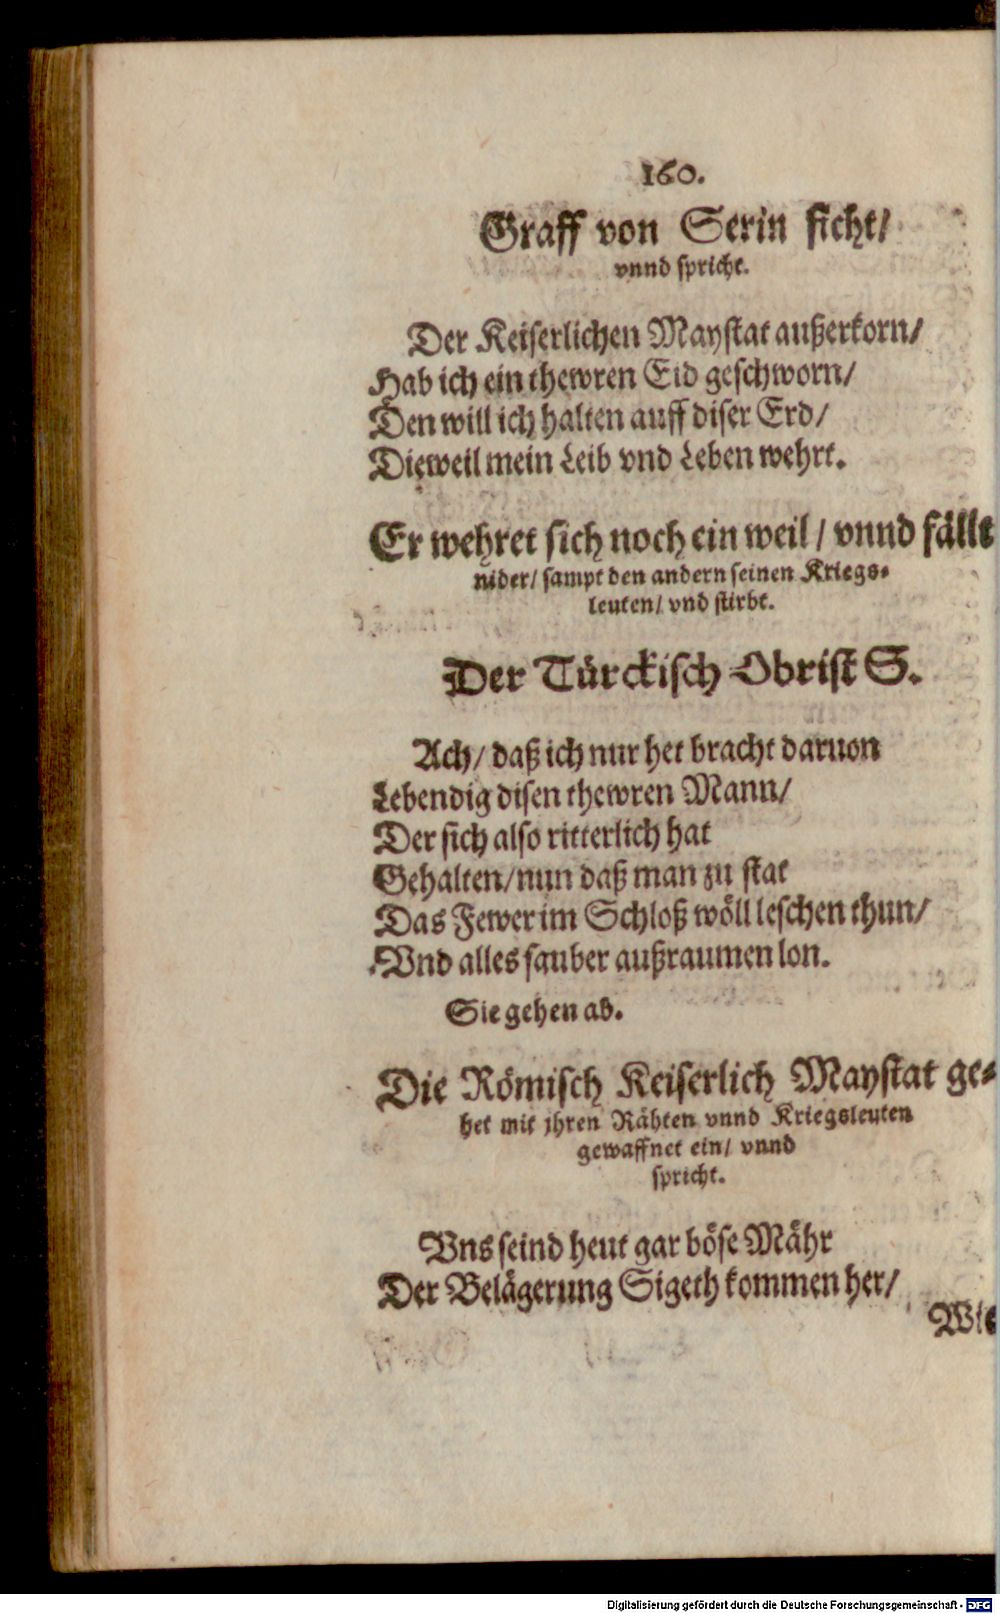 160.
Graff von Serin ficht/
vnnd spricht.
Der Keiserlichen Maystat außerkorn/
Hab ich ein thewren Eid geschworn/
Den will ich halten auff diser Erd/
Dieweil mein Leib vnd Leben wehrt.
Er wehret sich noch ein weil / vnnd fällt
nider/ sampt den andern seinen Kriegs-
leuten/ vnd stirbt.
Der Türckisch Obrist S.
Ach/ daß ich nur het bracht daruon
Lebendig disen thewren Mann/
Der sich also ritterlich hat
Gehalten/ nun daß man zu stat
Das Fewer im Schloß wöll leschen thun/
Vnd alles sauber außraumen lon.
Sie gehen ab.
Die Römisch Keiserlich Maystat ge-
het mit jhren Rähten vnnd Kriegsleuten
gewaffnet ein/ vnnd
spricht.
Vns seind heut gar böse Mähr
Der Belägerung Sigeth kommen her/
Wie
Digitalisierung gefördert durch die Deutsche Forschungsgemeinschaft - DFG